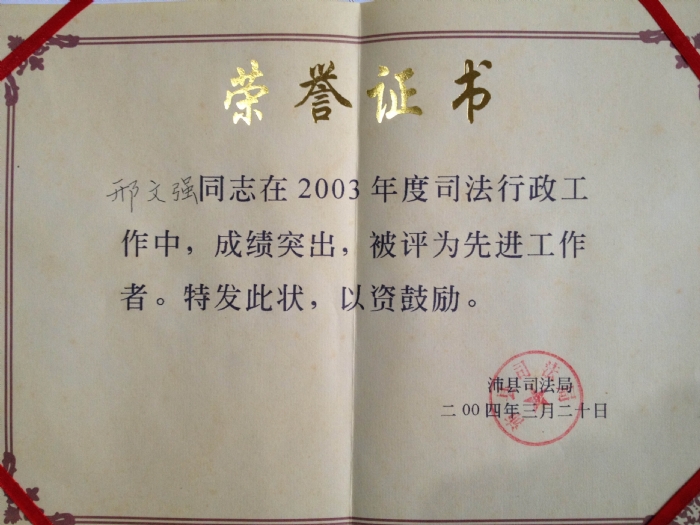 荣誉证书
邢文强同志在 2003 年度司法行政工
作中，成绩突出，被评为先进工作
者。特发此状，以资鼓励。
沛县司法局
二00四年三月二十日